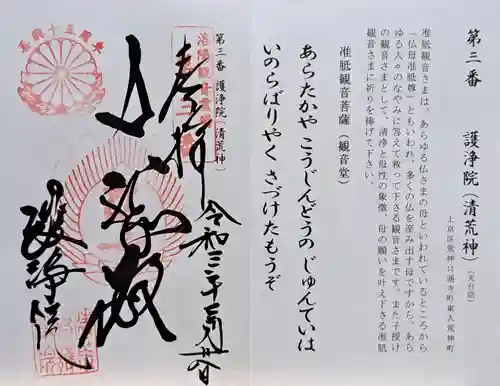 第三番　護浄院（清荒神）（天台宗）
上京区荒神口通寺町東入荒神町
准胝観音さまは、あらゆる仏さまの母といわれているところから
「仏母准胝尊」ともいわれ、多くの仏を産み出す母ですから、あら
ゆる人々のなやみに答えて救って下さる観音さまです。また子授け
の観音さまとして、清浄と母性の象徴、母の願いを叶え下さる准胝
観音さまに祈りを捧げて下さい。
准胝観音菩薩（観音堂）
あらたかや こうじんどうの じゅんていは
いのらばりやく さづけたもうぞ
第三番　護浄院（清荒神）
奉拝
令和三年
護浄院